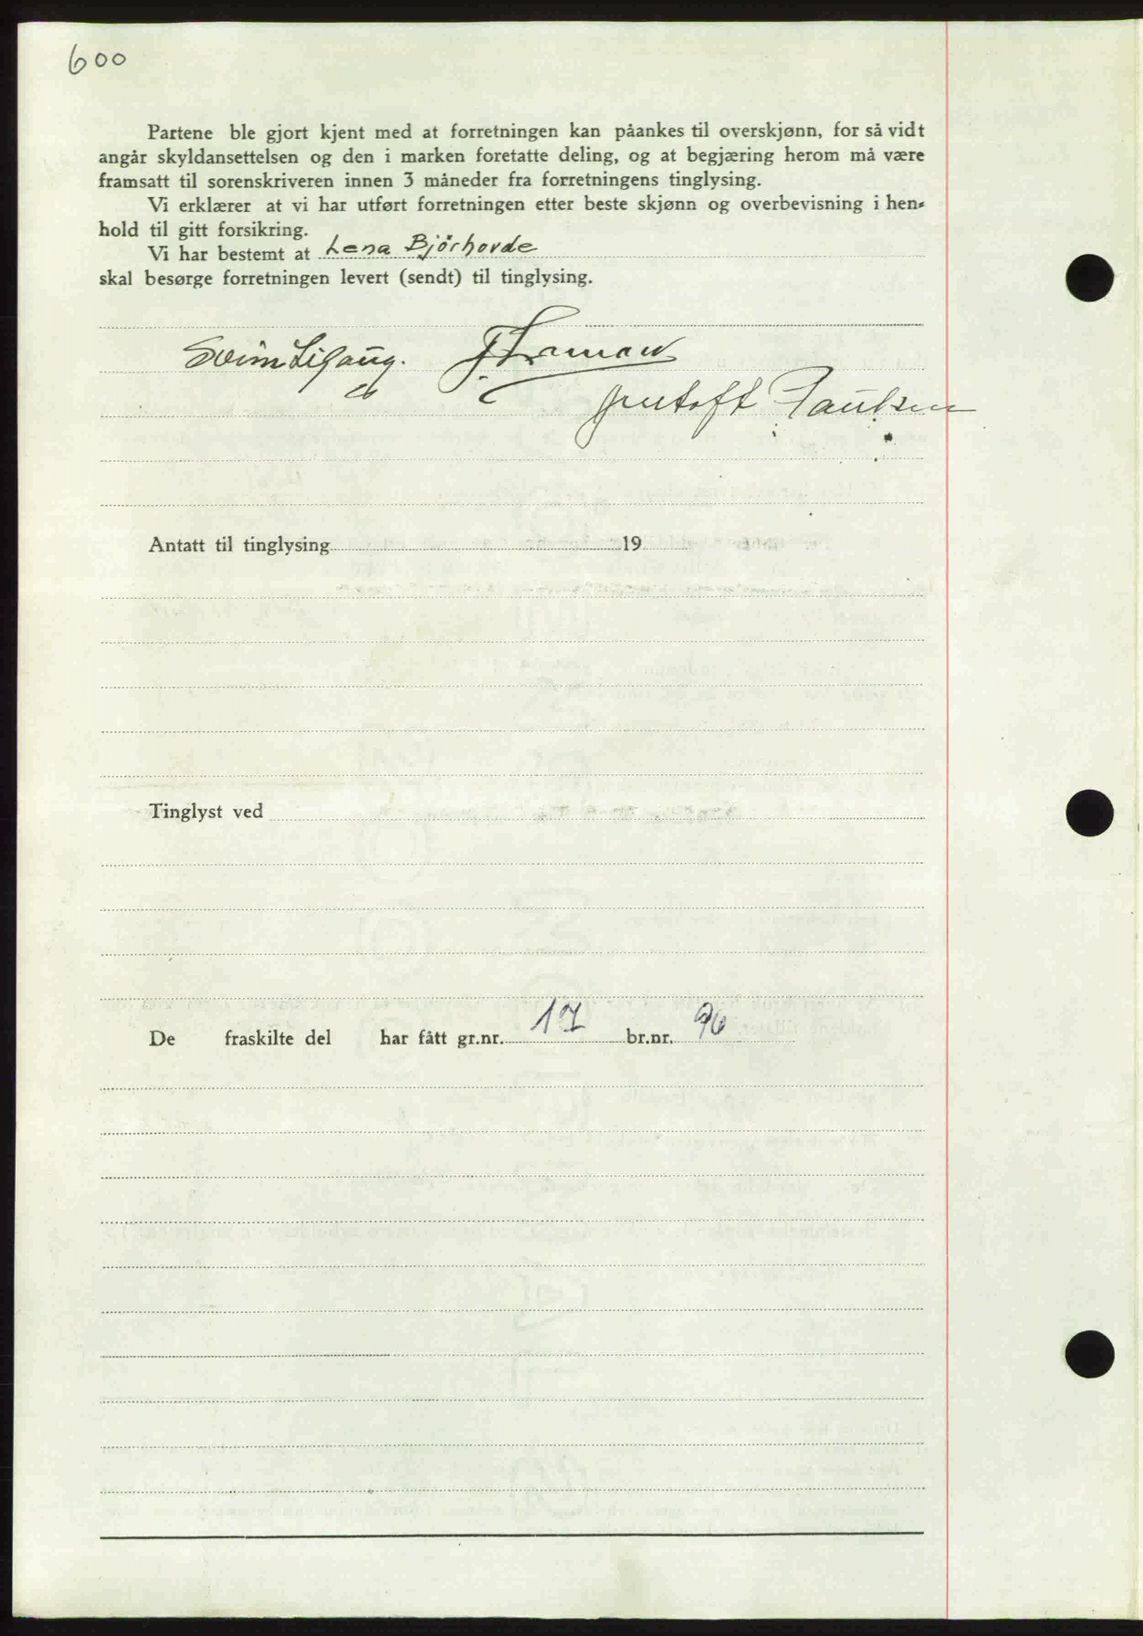 600
Partene ble gjort kjent med at forretningen kan påankes til overskjønn, for så vidt
angår skyldansettelsen og den i marken foretatte deling, og at begjæring herom må være
framsatt til sorenskriveren innen 3 måneder fra forretningens tinglysing.
Vi erklærer at vi har utført forretningen etter beste skjønn og overbevisning i hen-
hold til gitt forsikring.
Vi har bestemt at Lena Björhovde
skal besørge forretningen levert (sendt) til tinglysing.
Paulsen
Antatt til tinglysing 19
Tinglyst ved
De fraskilte del har fått gr.nr. 17 br.nr. 96